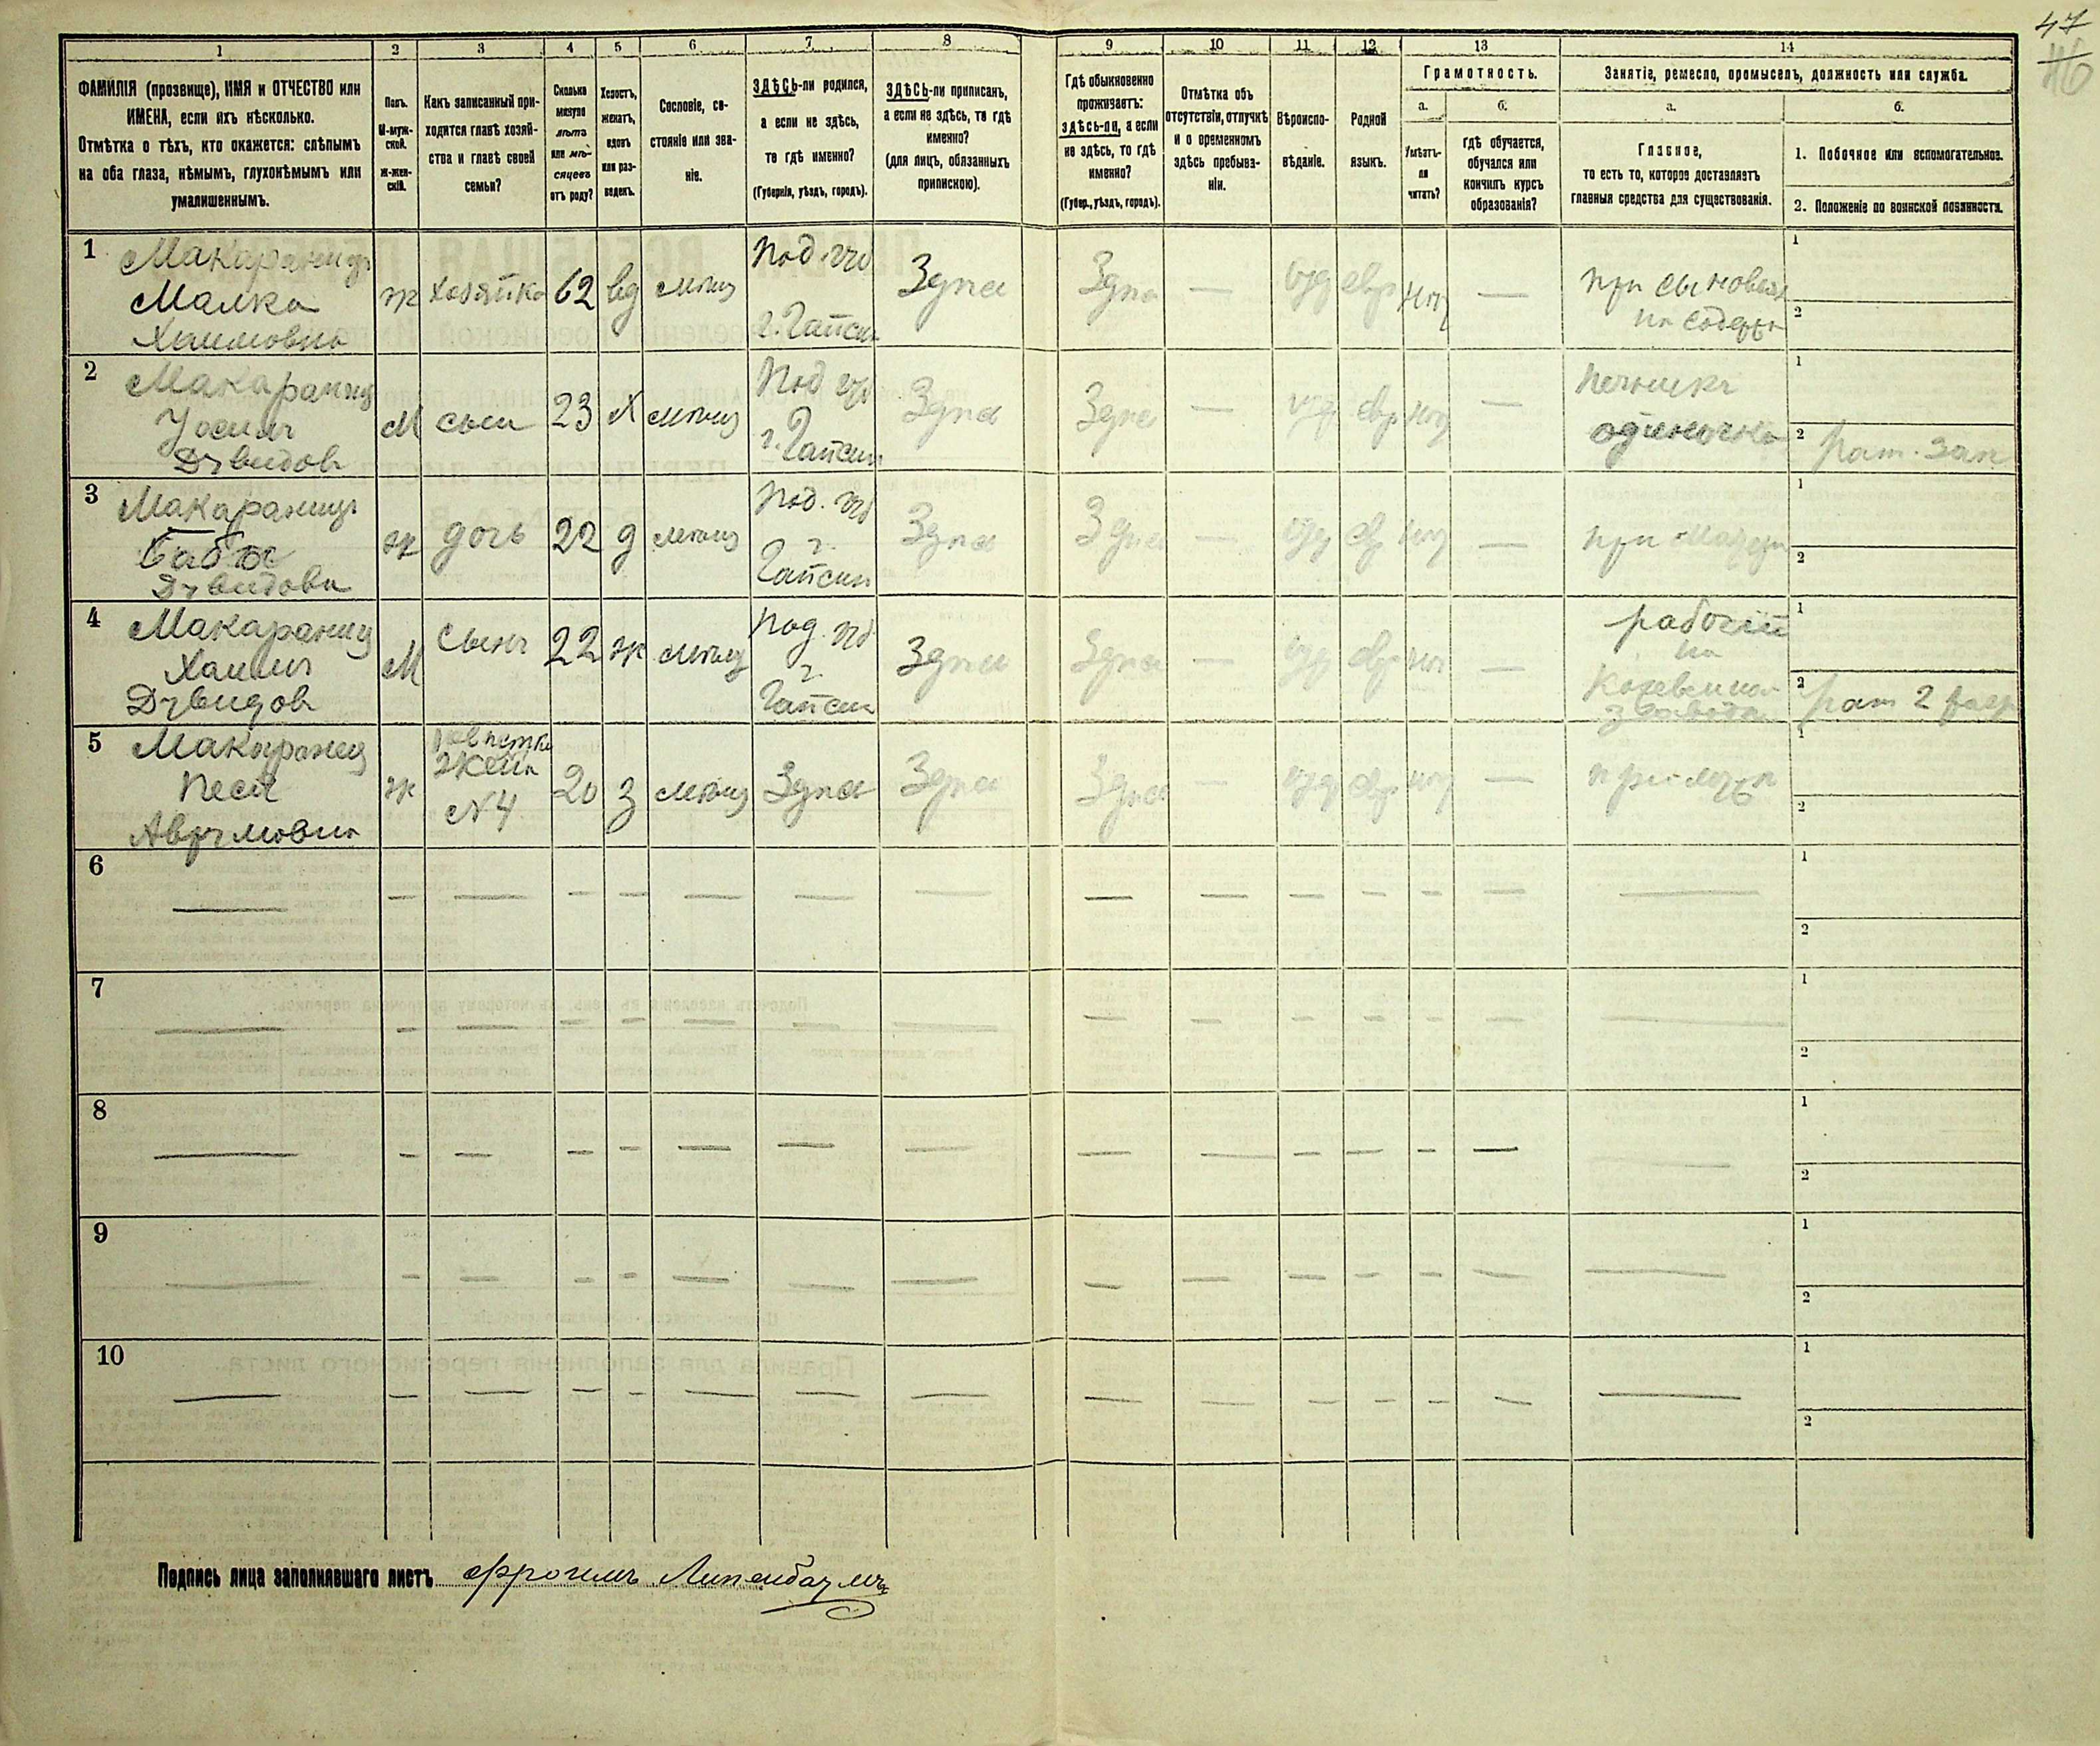 47
46
1
2
3
4
5
6
7
8
9
10
11
12
13
14
ФАМИЛІЯ (прозвище), ИМЯ и ОТЧЕСТВО или
ИМЕНА, если ихъ нѣсколько.
Отмѣтка о тѣхъ, кто окажется: слѣпымъ
на оба глаза, нѣмымъ, глухонѣмымъ или
умалишеннымъ.
Полъ.
М-муж-
ской.
Ж-жен-
скій.
Какъ записанный при-
ходится главѣ хозяй-
ства и главѣ своей
семьи?
Сколько
минуло
лѣтъ
или мѣ-
сяцевъ
отъ роду?
Холостъ,
женатъ,
вдовъ
или раз-
веденъ.
Сословіе, со-
стояніе или зва-
ніе.
ЗДѢСЬ-ли родился,
а если не здѣсь,
то гдѣ именно?
(Губернія, уѣздъ, городъ).
ЗДѢСЬ-ли приписанъ,
а если не здѣсь, то гдѣ
именно?
(для лицъ, обязанныхъ
припискою).
Гдѣ обыкновенно
проживаетъ:
здѣсь-ли, а если
не здѣсь, то гдѣ
именно?
(Губер., уѣздъ, городъ).
Отмѣтка объ
отсутствіи, отлучкѣ
и о временномъ
здѣсь пребыва-
ніи.
Вѣроиспо-
вѣданіе.
Родной
языкъ.
Грамотность.
а.
б.
Умѣетъ-
ли
читать?
гдѣ обучается,
обучался или
кончилъ курсъ
образованія?
Занятіе, ремесло, промыселъ, должность или служба.
а.
б.
Главное,
то есть то, которое доставляетъ
главныя средства для существованія.
1. Побочное или вспомогательное.
2. Положеніе по воинской повинности.
1
Макаранецъ
Малка
Хаимовна
ж
хозяйка
62
вд
мѣщ
Под. губ
г. Гайсин
Здѣсь
Здѣсь
—
іуд
евр
нѣт
—
при сыновьях
на содерж
1
2
2
Макаранец
Іосиль
Давидов
М
сын
23
х
мѣщ
Под губ
г. Гайсин
Здѣсь
Здѣсь
—
іуд
евр
нѣт
—
печникъ
одиночка
1
2
рат. зап
3
Макаранецъ
Бабъя
Давидова
ж
дочь
22
д
мѣщ
Под. губ
г.
Гайсин
Здѣсь
Здѣсь
—
іуд
евр
нѣт
—
при матери
1
2
4
Макаранец
Хаимъ
Давидов
М
Сынъ
22
ж
мѣщ
Под. губ
г.
Гайсин
Здѣсь
Здѣсь
—
іуд
евр
нѣт
—
рабочій
на
Кожевенном
заводе
1
2
рат 2 разр
5
Макаранец
Песя
Аврумовна
ж
невѣстка
жена
№4
20
з
мѣщ
Здѣсь
Здѣсь
Здѣсь
—
іуд
евр
нѣт
—
при мужѣ
1
2
6
1
2
7
1
2
8
1
2
9
1
2
10
1
2
Подпись лица заполнявшаго листъ